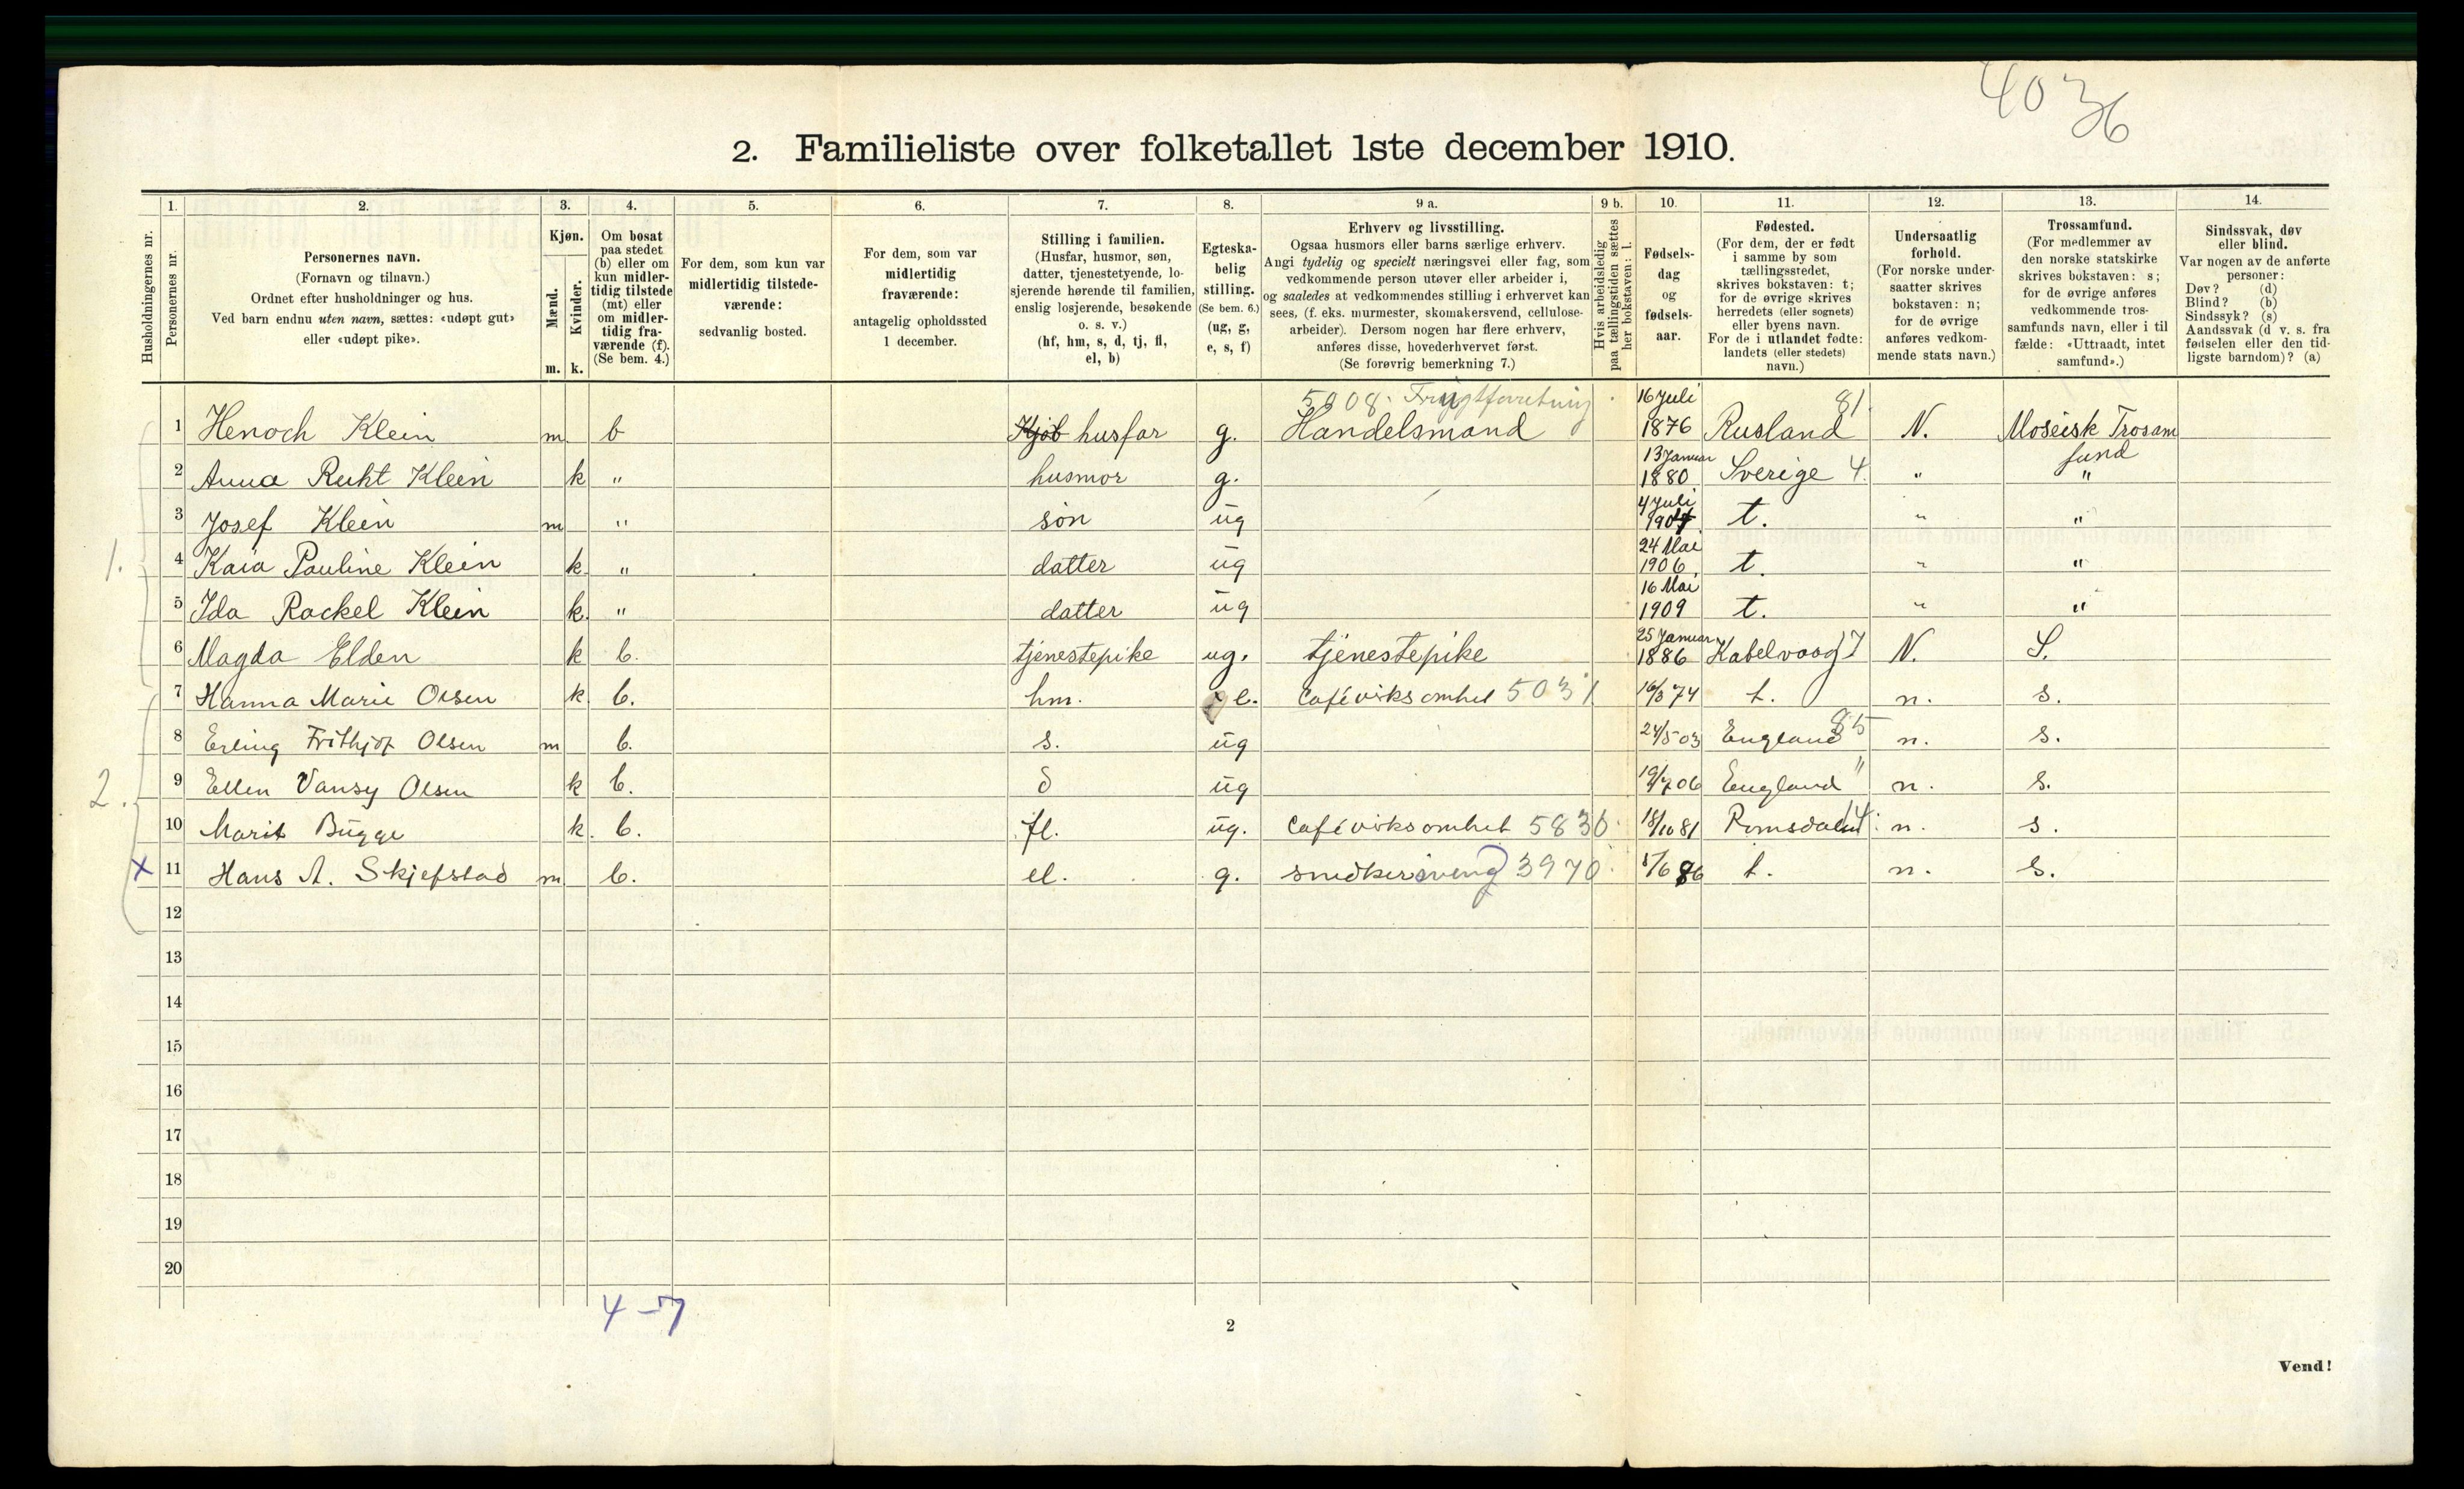 4036
2. Familieliste over folketallet 1ste december 1910.
Husholdningernes nr.
1.
Personernes nr.
2.
Personernes navn.
(Fornavn og tilnavn.)
Ordnet efter husholdninger og hus.
Ved barn endnu uten navn, sættes: «udøpt gut»
eller «udøpt pike».
3.
Kjøn.
Mænd.
Kvinder.
m. k.
4.
Om bosat
paa stedet
(b) eller om
kun midler-
tidig tilstede
(mt) eller
om midler-
tidig fra-
værende (f).
(Se bem. 4.)
5.
For dem, som kun var
midlertidig tilstede-
værende:
sedvanlig bosted.
6.
For dem, som var
midlertidig
fraværende:
antagelig opholdssted
1 december.
7.
Stilling i familien.
(Husfar, husmor, søn,
datter, tjenestetyende, lo-
sjerende hørende til familien,
enslig losjerende, besøkende
o. s. v.)
(hf, hm, s, d, tj, fl,
el, b)
8.
Egteska-
belig
stilling.
(Se bem. 6.)
(ug, g,
e, s, f)
9 a.
Erhverv og livsstilling.
Ogsaa husmors eller barns særlige erhverv.
Angi tydelig og specielt næringsvei eller fag, som
vedkommende person utøver eller arbeider i,
og saaledes at vedkommendes stilling i erhvervet kan
sees, (f. eks. murmester, skomakersvend, cellulose-
arbeider). Dersom nogen har flere erhverv,
anføres disse, hovederhvervet først.
(Se forøvrig bemerkning 7.)
9 b.
Hvis arbeidsledig
paa tællingstiden sættes
her bokstaven: l.
10.
Fødsels-
dag
og
fødsels-
aar.
11.
Fødested.
(For dem, der er født
i samme by som
tællingsstedet,
skrives bokstaven: t;
for de øvrige skrives
herredets (eller sognets)
eller byens navn.
For de i utlandet fødte:
landets (eller stedets)
navn.)
12.
Undersaatlig
forhold.
(For norske under-
saatter skrives
bokstaven: n;
for de øvrige
anføres vedkom-
mende stats navn.)
13.
Trossamfund.
(For medlemmer av
den norske statskirke
skrives bokstaven: s;
for de øvrige anføres
vedkommende tros-
samfunds navn, eller i til
fælde: «Uttraadt, intet
samfund».)
14.
Sindssvak, døv
eller blind.
Var nogen av de anførte
personer:
Døv? (d)
Blind? (b)
Sindssyk? (s)
Aandssvak (d v. s. fra
fødselen eller den tid-
ligste barndom)? (a)
5008. Frugtforretning 16 Juli 81.
1 Henoch Klein m. b husfar g. Handelsmand 1876 Rusland N. Moseisk Trosam
fund
2 Anna Ruht Klein k " husmor g. 13 Januar 1880 Sverige 4. " "
3 Josef Klein m " søn ug 4 Juli t. " "
1.
4 Kaia Pauline Klein k " datter ug 24 Mai 1906 t. " "
5 Ida Rackel Klein k. " datter ug 16 Mai 1909 t. " "
6 Magda Elden k b. tjenestepike ug. tjenestepike 25 Januar 1886 Kabelvaag 17 N. S.
7 Hanna Marie Olsen k. b. hm. e. Cafévirksomhet 5031 16/3 74 t. n. s.
8 Erling Frithjof Olsen m b. s. ug 24/5 03 England 85 n. s.
2.
9 Ellen Vansy Olsen k b. d ug 19/7 06 England " n. s.
10 Marit Bugge k. b. fl. ug. Cafévirksomhet 5830 18/10 81 Romsdalen 14 n. s.
x 11 Hans A. Skjefstad m b. el. g. snedkersvend 3970 5/6 86 t. n. s.
12
13
14
15
16
17
18
19
20
4 - 7
2
Vend!